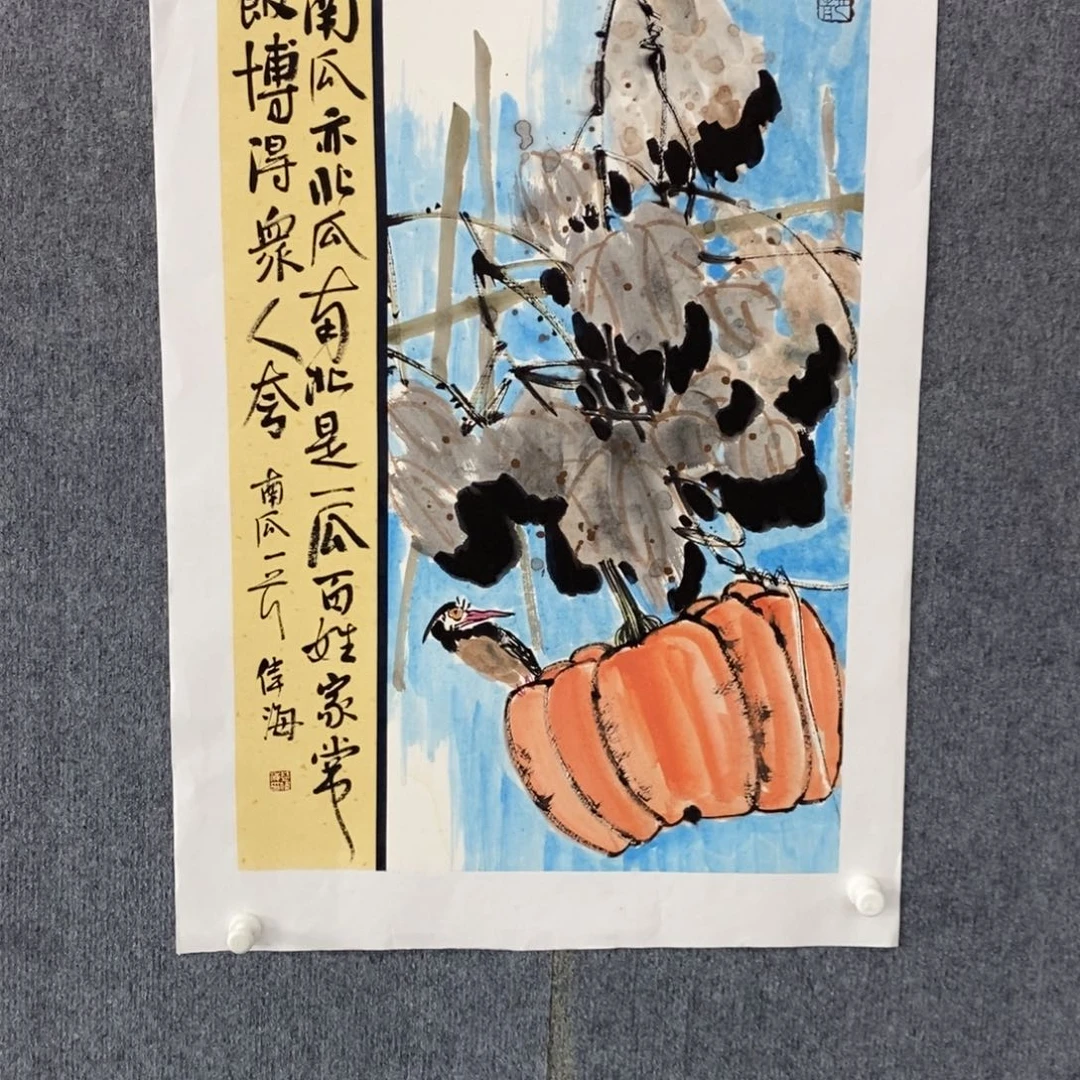 南瓜亦北瓜南北是一瓜百姓家常
飯博得衆人夸
南瓜一
偉海